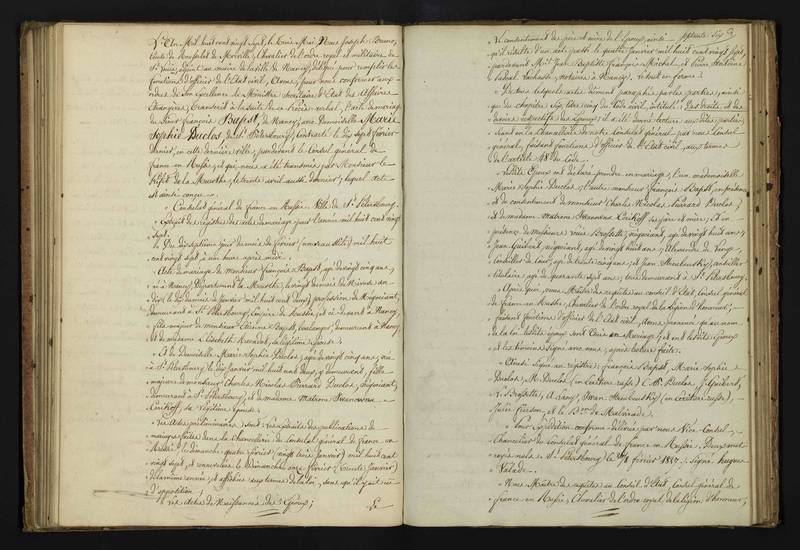 L'An Mil huit cent vingt Sept, le trois Mai, Nous Joseph Bruno,
Comte de Monplat de Morville, Chevalier de l'ordre royal et militaire de
St Louis, adjoint au maire de la ville de Nancy, délégué pour remplir les
fonctions d'officier de l'Etat civil, Avons, pour nous conformer aux
ordres de Son Excellence le Ministre Secrétaire d'Etat des Affaires
Etrangères, transcrit à la suite de ce procès-verbal, l'acte de mariage
du Sieur François Bapst, de Nancy, avec Demoiselle Marie
Sophie Duclos, de St Pétersbourg, Contracté le dix sept février
dernier, en cette dernière ville, pardevant le Consul général de
france en Russie, et qui nous a été transmis par Monsieur le
Préfet de la Meurthe, le trente avril aussi dernier; lequel acte
est ainsi conçu.
Consulat général de france en Russie. Ville de St Pétersbourg.
Extrait des registres des actes de mariage pour l'année mil huit cent vingt
Sept.
Du dix septième jour du mois de février (nouveau stile) mil huit
cent vingt sept, à une heure après midi.
Acte de mariage de Monsieur François Bapst, âgé de vingt cinq ans,
né à Nancy, Département de la Meurthe, le vingt du mois de Nivose an
dix (le dix janvier mil huit cent deux), profession de Négociant,
demeurant à St Pétersbourg, Empire de Russie, et ci-devant à Nancy,
fils majeur de monsieur Etienne Bapst, boulanger, demeurant à Nancy,
et de madame Elisabeth, sa légitime épouse.
Et de demoiselle Marie Sophie Duclos, âgée de vingt cinq ans, née
à St Pétersbourg le dix janvier mil huit cent deux, y demeurant, fille
majeure de monsieur Charles Nicolas Duclos, Négociant,
demeurant à St Pétersbourg, et de madame Matrena Iwanowna
sa légitime épouse.
Les actes préliminaires sont les extraits des publications de
mariage faites dans la Chancellerie du Consulat général de france en
Russie, le dimanche quatre février (vingt trois janvier) mil huit cent
vingt sept, et le dimanche onze février (trente janvier)
de la même année, et affichées aux termes de la loi, sans qu'il y ait eu
d'opposition.
Les actes de Naissances des Epoux;
Le consentement des père et mère de l'Epoux, ainsi
qu'il résulte d'un acte passé le quatre janvier mil huit cent vingt sept,
pardevant Mes Jean Baptiste François Michel, et
notaires à Nancy, et en forme.
De tous lesquels actes dûment paraphés par les parties, ainsi
que du chapitre Six, titre cinq du Code civil, intitulé: Des droits et des
devoirs respectifs des Epoux; il a été donné lecture aux dites parties,
étant en la Chancellerie de notre Consulat général par nous Consul
général, faisant fonctions d'officier de l'Etat civil, aux termes
de l'article 48 du Code.
Lesdits Epoux ont déclaré prendre en mariage, l'un mademoiselle
Marie Sophie Duclos, l'autre monsieur François Bapst, en présence
et du consentement de monsieur Charles Nicolas Duclos,
et de madame Matrena Iwanowna ses père et mère, et en
présence de Messieurs Louis Brossette, négociant, âgé de vingt huit ans;
Jean Guibert, négociant, âgé de vingt huit ans;
Conseiller de Cour, âgé de trente cinq ans; et Jean conseiller
titulaire, âgé de quarante sept ans; tous demeurant à St Pétersbourg.
Après quoi, nous Maître des requêtes au conseil d'Etat, Consul général
de france en Russie, Chevalier de l'ordre royal de la légion d'honneur,
faisant fonctions d'officier de l'Etat civil, avons prononcé qu'au nom
de la loi lesdits époux sont Unis en Mariage; et ont lesdits Epoux
et les témoins signé avec nous, après lecture faite.
Ainsi Signé au registre: François Bapst, Marie Sophie
Duclos, M. Duclos (en écriture russe), C. N. Duclos, J. Guibert,
L. Brossette, Iwan (en écriture russe),
et le Bon de Malvirade.
Pour Expédition conforme délivrée par nous Vice-Consul,
Chancelier du Consulat général de france en Russie. Deux mots
rayés nuls. St Pétersbourg le février 1827. Signé: hugues
Valade.
Nous Maître des requêtes au conseil d'Etat, Consul général de
france en Russie, Chevalier de l'ordre royal de la légion d'honneur,